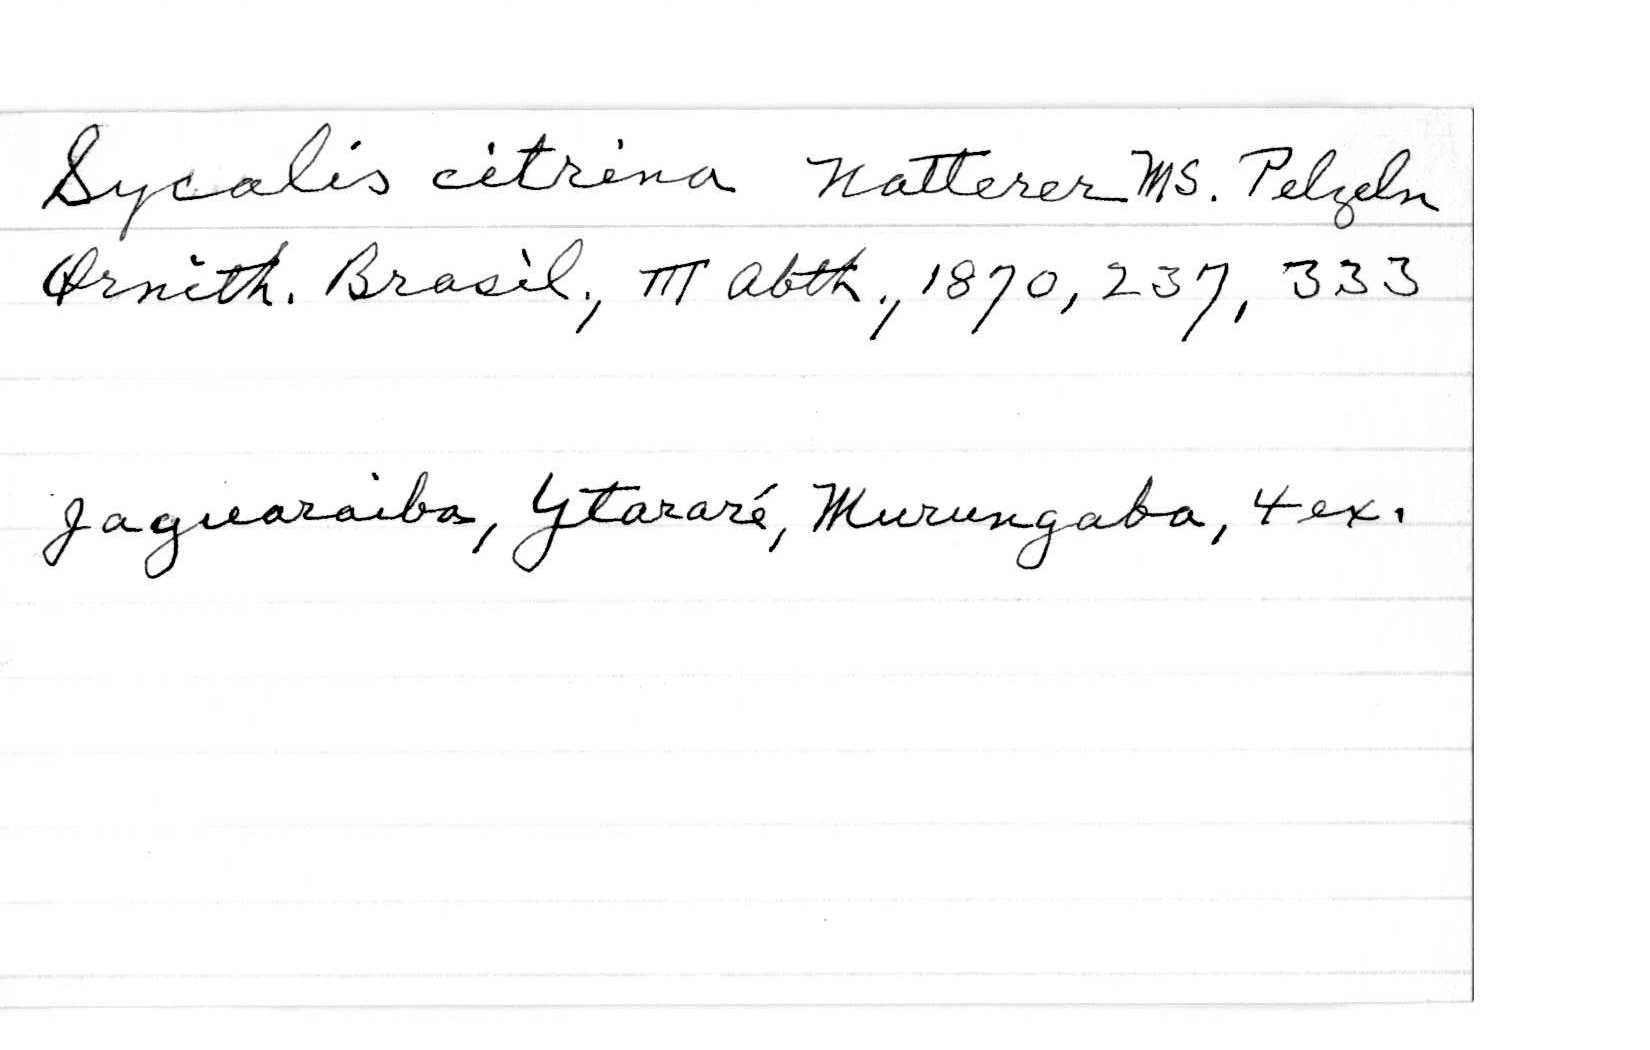 Sycalis citrina Natterer MS. Pelzeln
Ornith. Brasil., III Abth., 1870, 237, 333
Jaguaraiba, Ytararé, Murungaba, 4 ex.